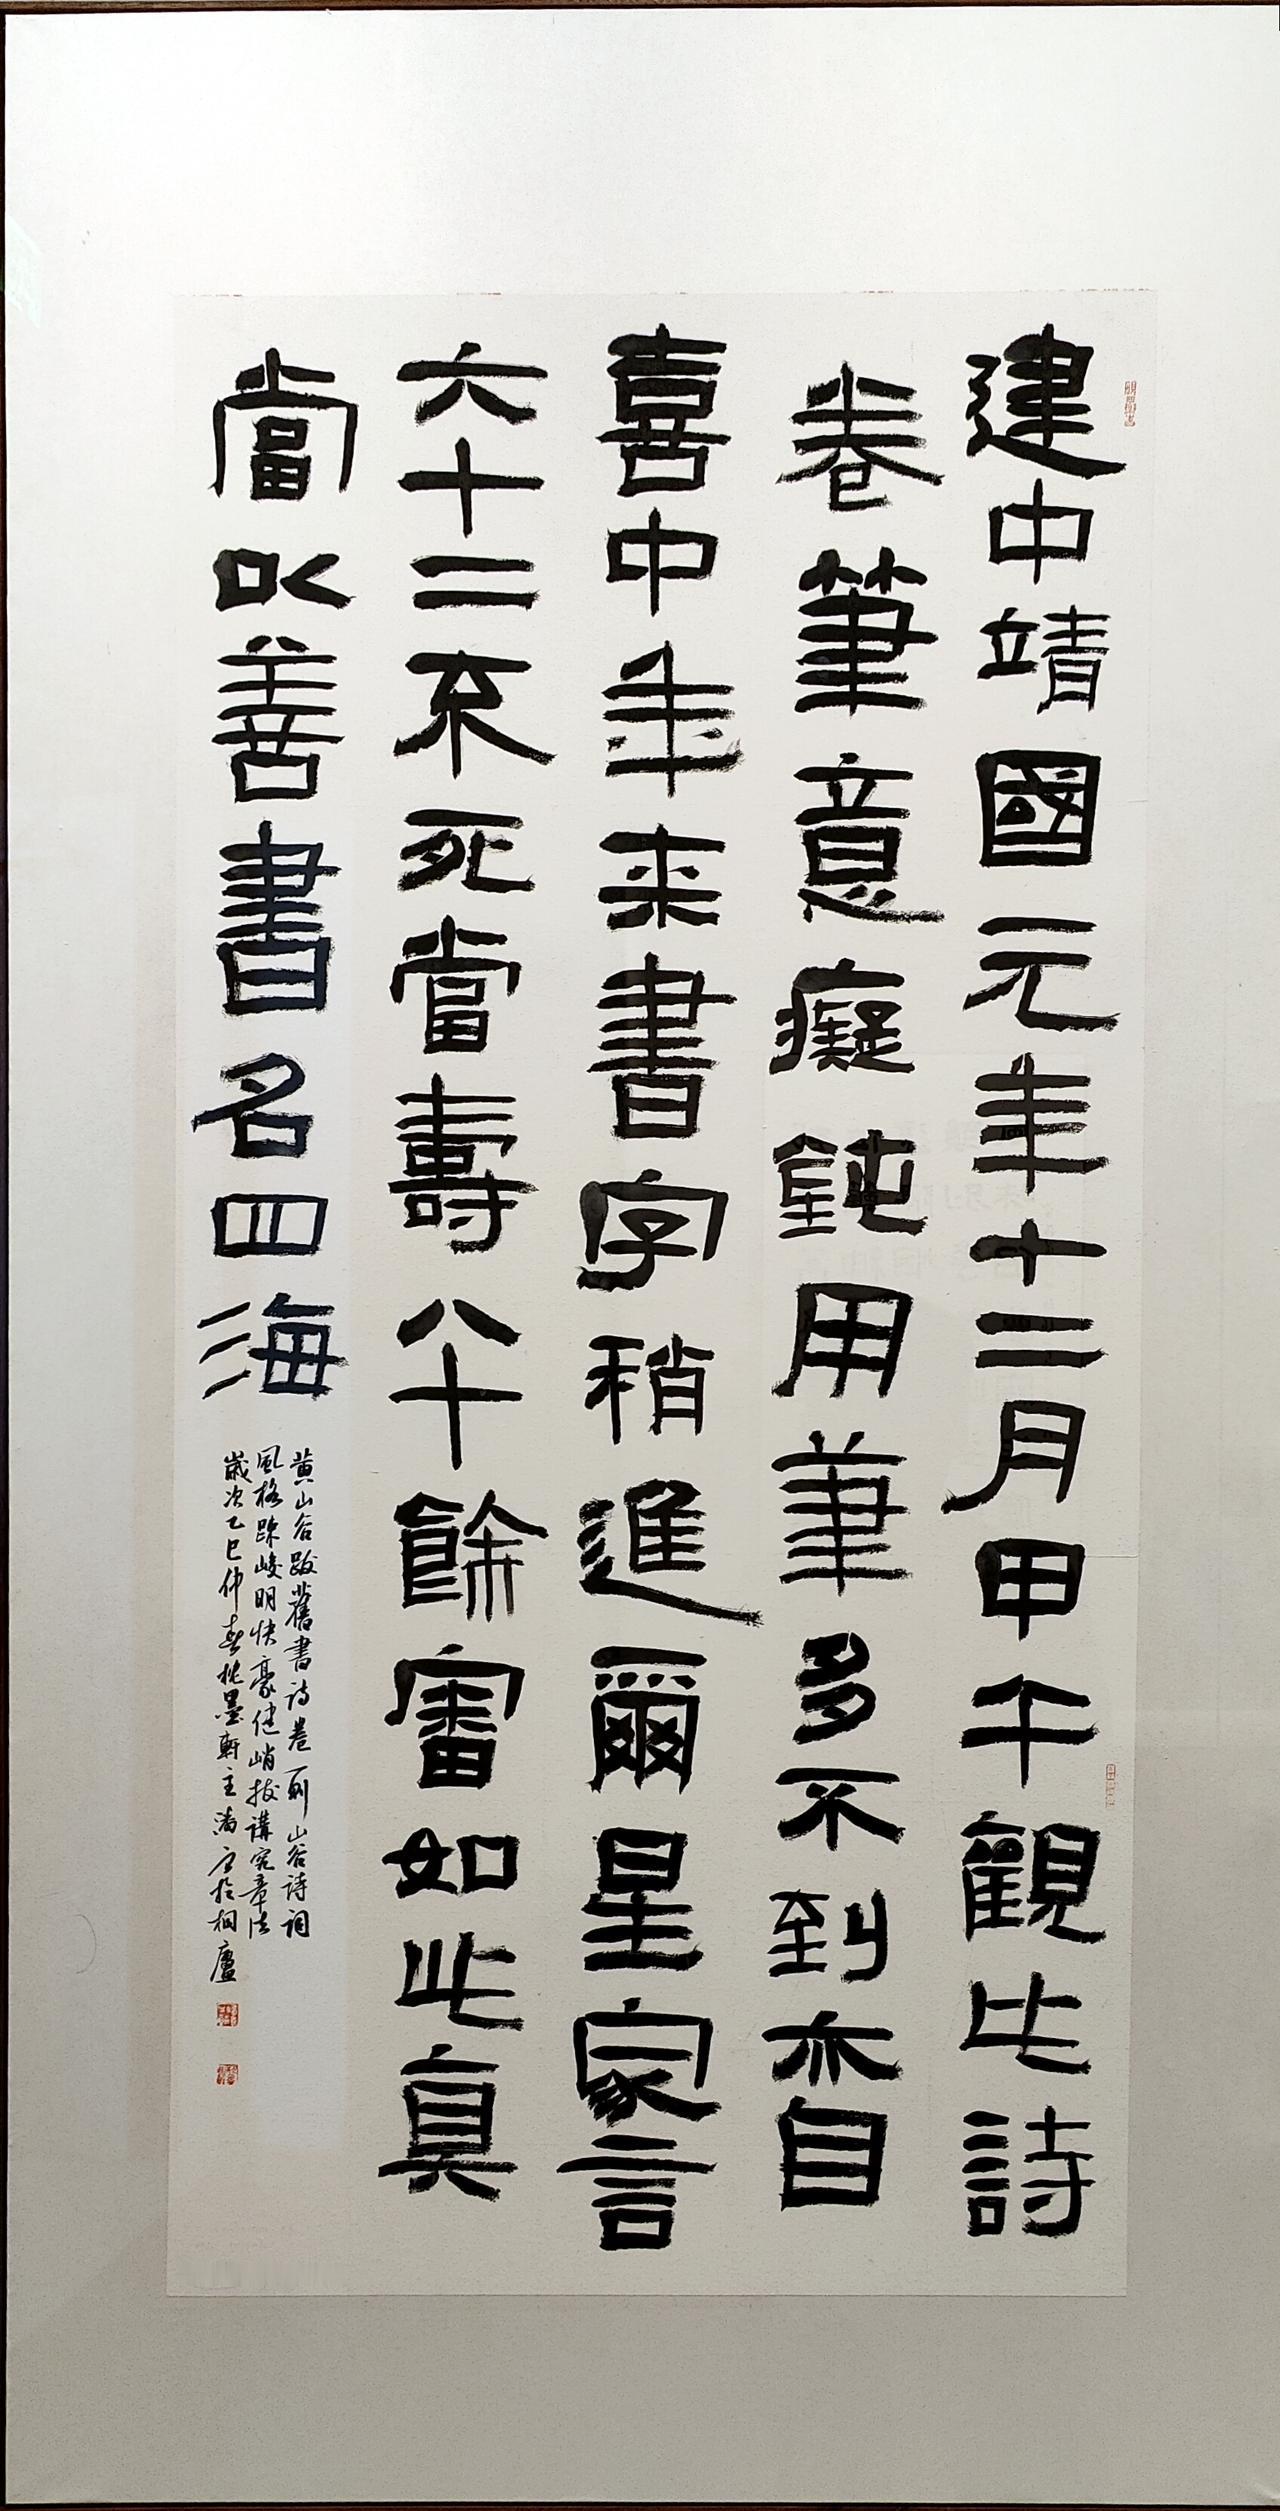 建中靖國元年十二月甲午觀此詩
卷筆意癡鈍用筆多不到亦自
喜中年来書字稍進爾星家言
六十二不死當壽八十餘審如此真
當以善書名四海
黄山谷跋舊書詩卷一則山谷詩詞
風格踈峻明快豪健峭拔講究章法
歲次乙巳仲春 墨軒主 於桐廬